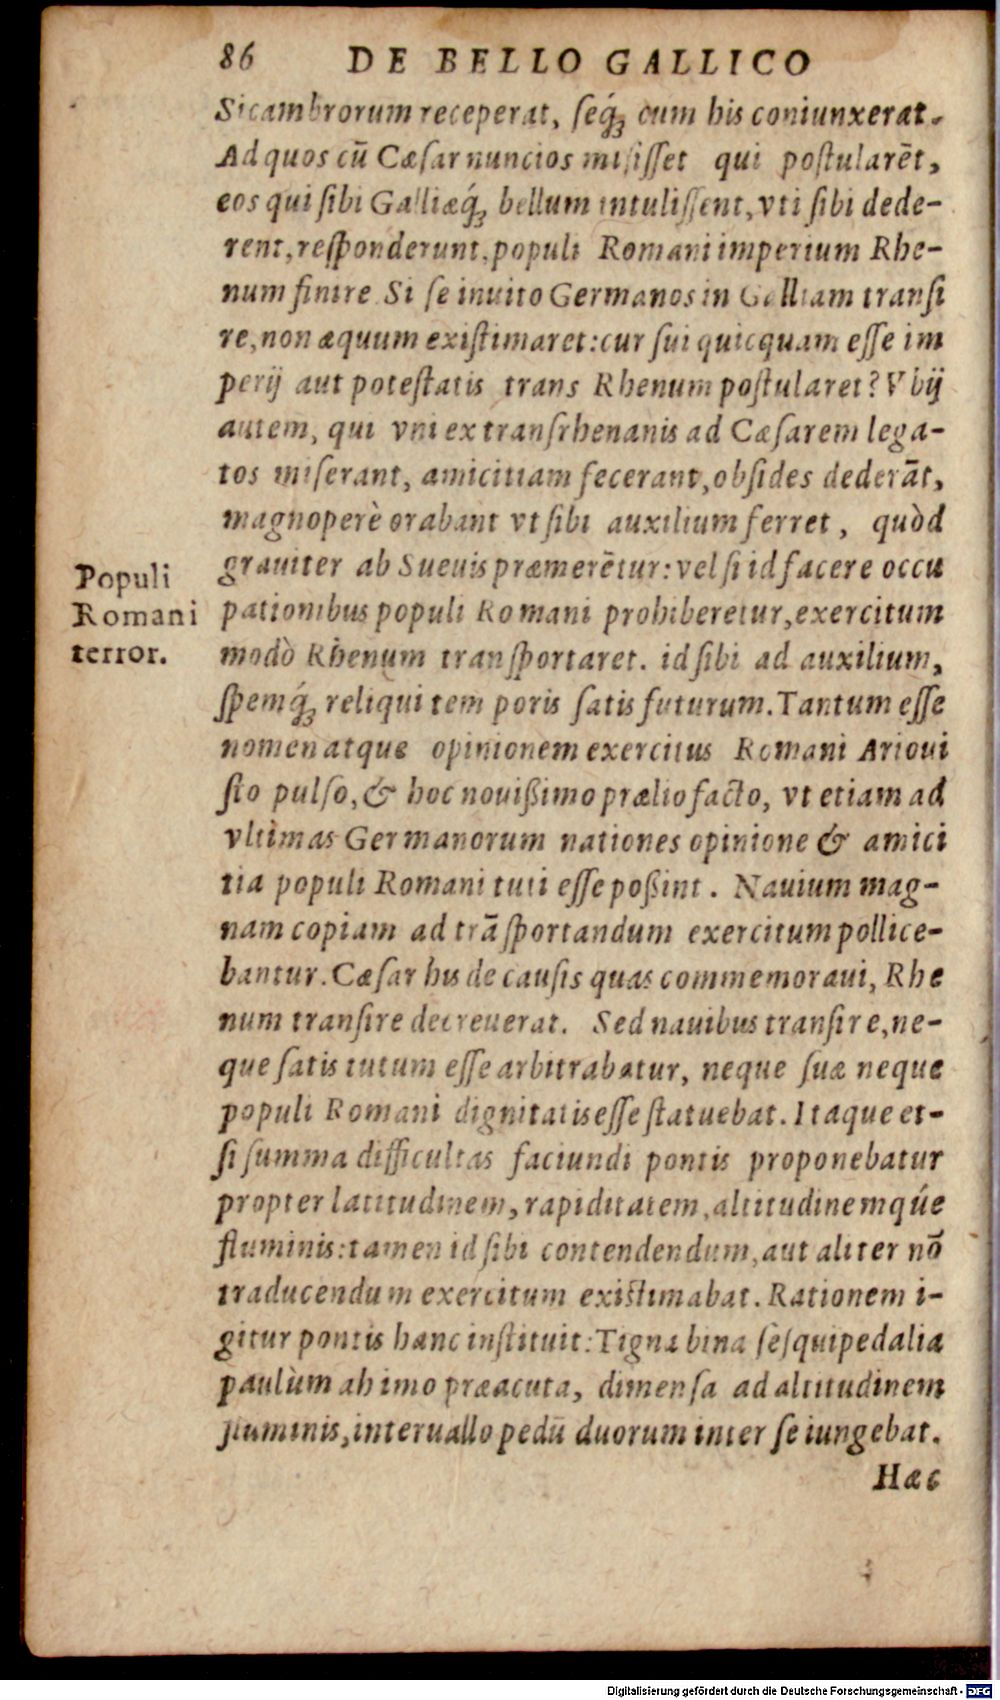 86 DE BELLO GALLICO
Sicambrorum receperat, seq́ꝫ cum his coniunxerat.
Ad quos cū Cæsar nuncios misisset qui postularēt,
eos qui sibi Galliæq́ꝫ bellum intulissent, vti sibi dede-
rent, responderunt, populi Romani imperium Rhe-
num finire Si se inuito Germanos in Galliam transi
re, non æquum existimaret: cur sui quicquam esse im
perij aut potestatis trans Rhenum postularet? Vbij
autem, qui vni ex transrhenanis ad Cæsarem lega-
tos miserant, amicitiam fecerant, obsides dederāt,
magnoperè orabant vt sibi auxilium ferret, quòd
grauiter ab Sueuis præmerētur: vel si id facere occu
pationibus populi Romani prohiberetur, exercitum
modò Rhenum transportaret. id sibi ad auxilium,
spemq́ꝫ reliqui tem poris satis futurum. Tantum esse
nomen atque opinionem exercitus Romani Arioui
sto pulso, & hoc nouißimo prælio facto, vt etiam ad
vltimas Germanorum nationes opinione & amici
tia populi Romani tuti esse poßint. Nauium mag-
nam copiam ad trāsportandum exercitum pollice-
bantur. Cæsar his de causis quas commemoraui, Rhe
num transire decreuerat. Sed nauibus transire, ne-
que satis tutum esse arbitrabatur, neque suæ neque
populi Romani dignitatis esse statuebat. Itaque et-
si summa difficultas faciundi pontis proponebatur
propter latitudinem, rapiditatem, altitudinemqúe
fluminis: tamen id sibi contendendum, aut aliter nō
traducendum exercitum existimabat. Rationem i-
gitur pontis hanc instituit: Tigna bina sesquipedalia
paulùm ab imo præacuta, dimensa ad altitudinem
fluminis, interuallo pedū duorum inter se iungebat.
Hæc
Populi
Romani
terror.
Digitalisierung gefördert durch die Deutsche Forschungsgemeinschaft - DFG